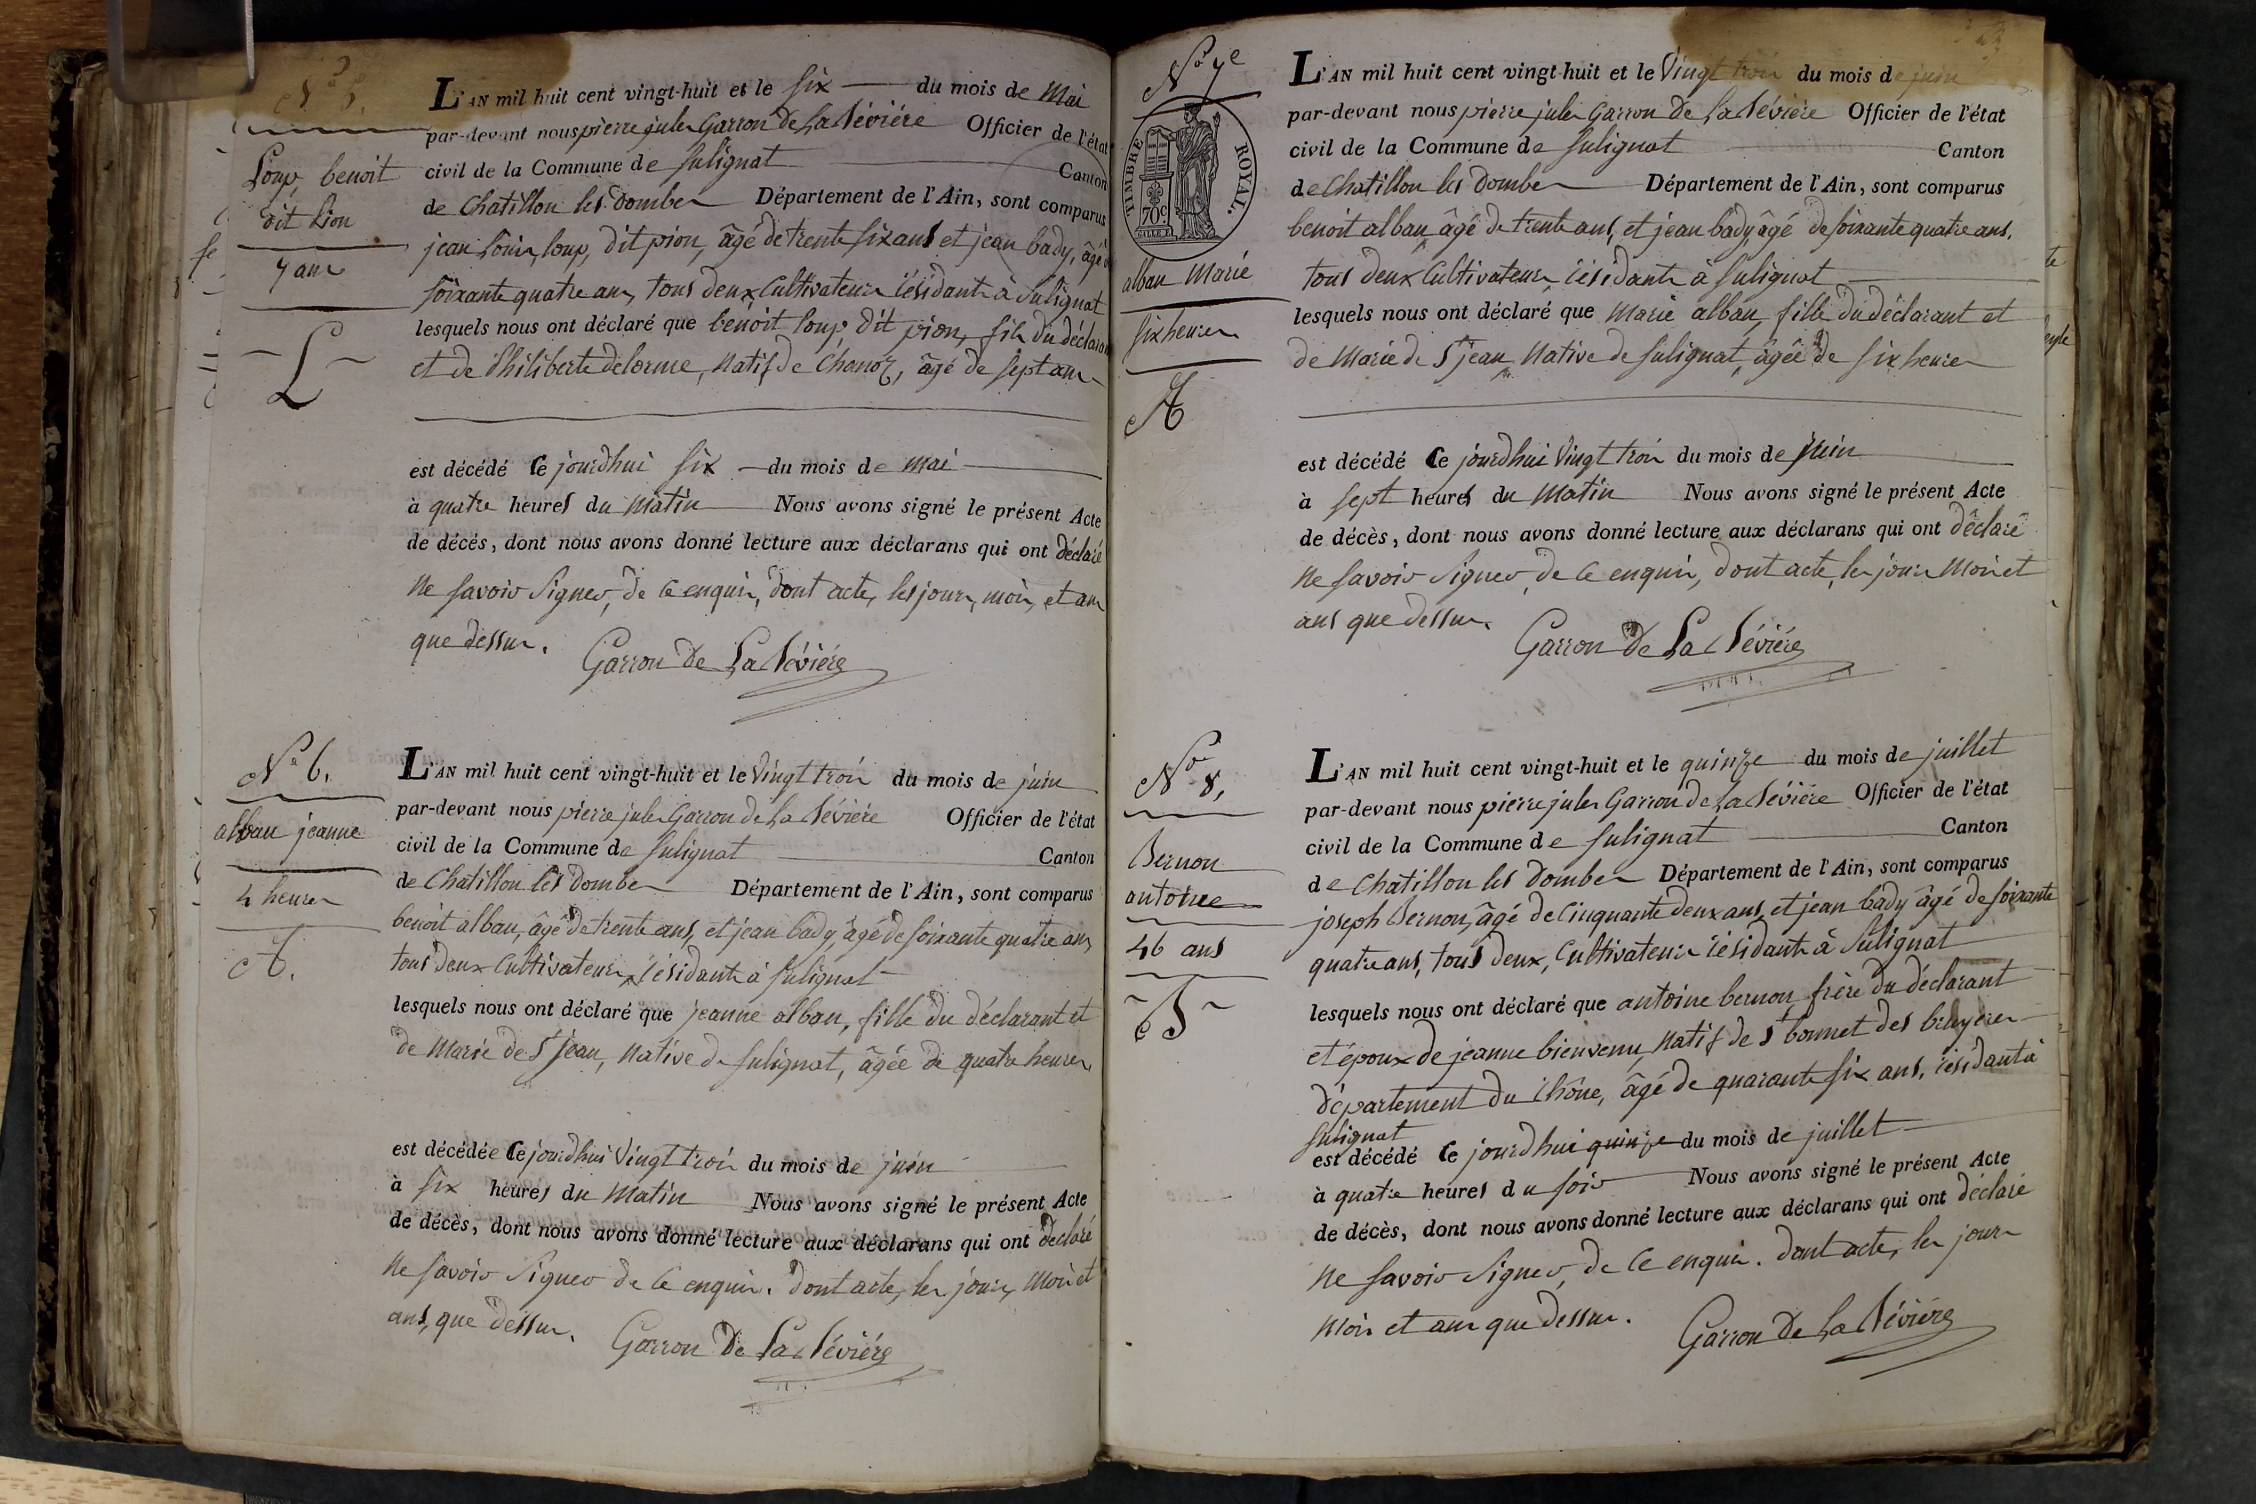 N° 5.
Loup, benoit
dit Pion
7 ans
L
L'AN mil huit cent vingt-huit et le six du mois de mai
par-devant nous pierre jules Garron de La Sévière Officier de l'état
civil de la Commune de Sulignat Canton
de Chatillon les dombes Département de l'Ain, sont comparus
jean Louis loup, dit pion, âgé de trente six ans et jean bady, âgé de
soixante quatre ans, tous deux Cultivateurs résidants à Sulignat
lesquels nous ont déclaré que benoit loup, dit pion, fils du déclarant
et de Philiberte delorme, natif de Chanoz, âgé de sept ans
est décédé Ce jourdhui six du mois de mai
à quatre heures du matin Nous avons signé le présent Acte
de décés, dont nous avons donné lecture aux déclarans qui ont déclaré
ne savoir signer, de ce enquis, dont acte, les jours, mois, et ans
que dessus.
Garron De La Sévière
N° 6.
alban jeanne
4 heures
A.
L'AN mil huit cent vingt-huit et le Vingt trois du mois de juin
par-devant nous pierre jules Garron de La Sévière Officier de l'état
civil de la Commune de Sulignat Canton
de Chatillon les Dombes Département de l'Ain, sont comparus
benoit alban, âgé de trente ans, et jean bady, âgé de soixante quatre ans,
tous deux Cultivateurs, résidants à Sulignat
lesquels nous ont déclaré que jeanne alban, fille du déclarant et
de Marie de St jean, Native de Sulignat, âgée de quatre heures,
est décédée Ce jourdhui Vingt trois du mois de juin
à six heures du Matin Nous avons signé le présent Acte
de décès, dont nous avons donné lecture aux déclarans qui ont déclaré
Ne savoir signer de ce enquis. Dont acte, les jours, mois et
ans, que dessus.
Garron De La Sévière
N° 7e
TIMBRE ROYAL.
70c.
alban Marie
six heures
A
L'AN mil huit cent vingt-huit et le Vingt trois du mois de juin
par-devant nous pierre jules Garron de La Sévière Officier de l'état
civil de la Commune de Sulignat Canton
de Chatillon les Dombes Département de l'Ain, sont comparus
benoit alban, âgé de trente ans, et jean bady, âgé de soixante quatre ans.
tous deux Cultivateurs résidants à Sulignat
lesquels nous ont déclaré que Marie alban, fille du déclarant et
de Marie de St jean, Native de Sulignat, âgée de six heures
est décédé Ce jourdhui Vingt trois du mois de juin
à sept heures du Matin Nous avons signé le présent Acte
de décés, dont nous avons donné lecture aux déclarans qui ont déclaré
Ne savoir signer, de ce enquis, dont acte, les jours Mois et
ans que dessus.
Garron De La Sévière
N° 8,
Bernon
antoine
46 ans
B
L'AN mil huit cent vingt-huit et le quinze du mois de juillet
par-devant nous pierre jules Garron de La Sévière Officier de l'état
civil de la Commune de Sulignat Canton
de Chatillon les Dombes Département de l'Ain, sont comparus
joseph Bernon, âgé de Cinquante deux ans, et jean bady âgé de soixante
quatre ans, tous deux, Cultivateurs résidants à Sulignat
lesquels nous ont déclaré que antoine bernon, frère du déclarant
et époux de jeanne bienvenu, Natif de St bonnet des bruyeres
département du rhône, âgé de quarante six ans, résidant à
Sulignat
est décédé Ce jourdhui quinze du mois de juillet
à quatre heures du soir Nous avons signé le présent Acte
de décès, dont nous avons donné lecture aux déclarans qui ont déclaré
Ne savoir signer, de ce enquis. dont acte, les jours
mois et ans que dessus.
Garron de La Sévière